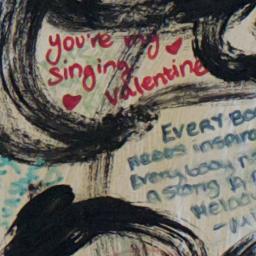 you're my
singing
valentine
EVERY BO
Needs inspira
Everybody n
A song A
Melod
- Mi